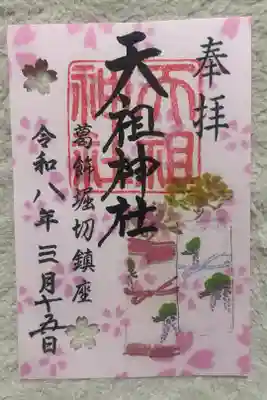 奉拝
天祖神社
天祖神社
葛飾堀切鎮座
令和八年三月十五日